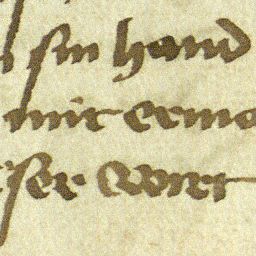 sin hand
mit erma
ser wirt